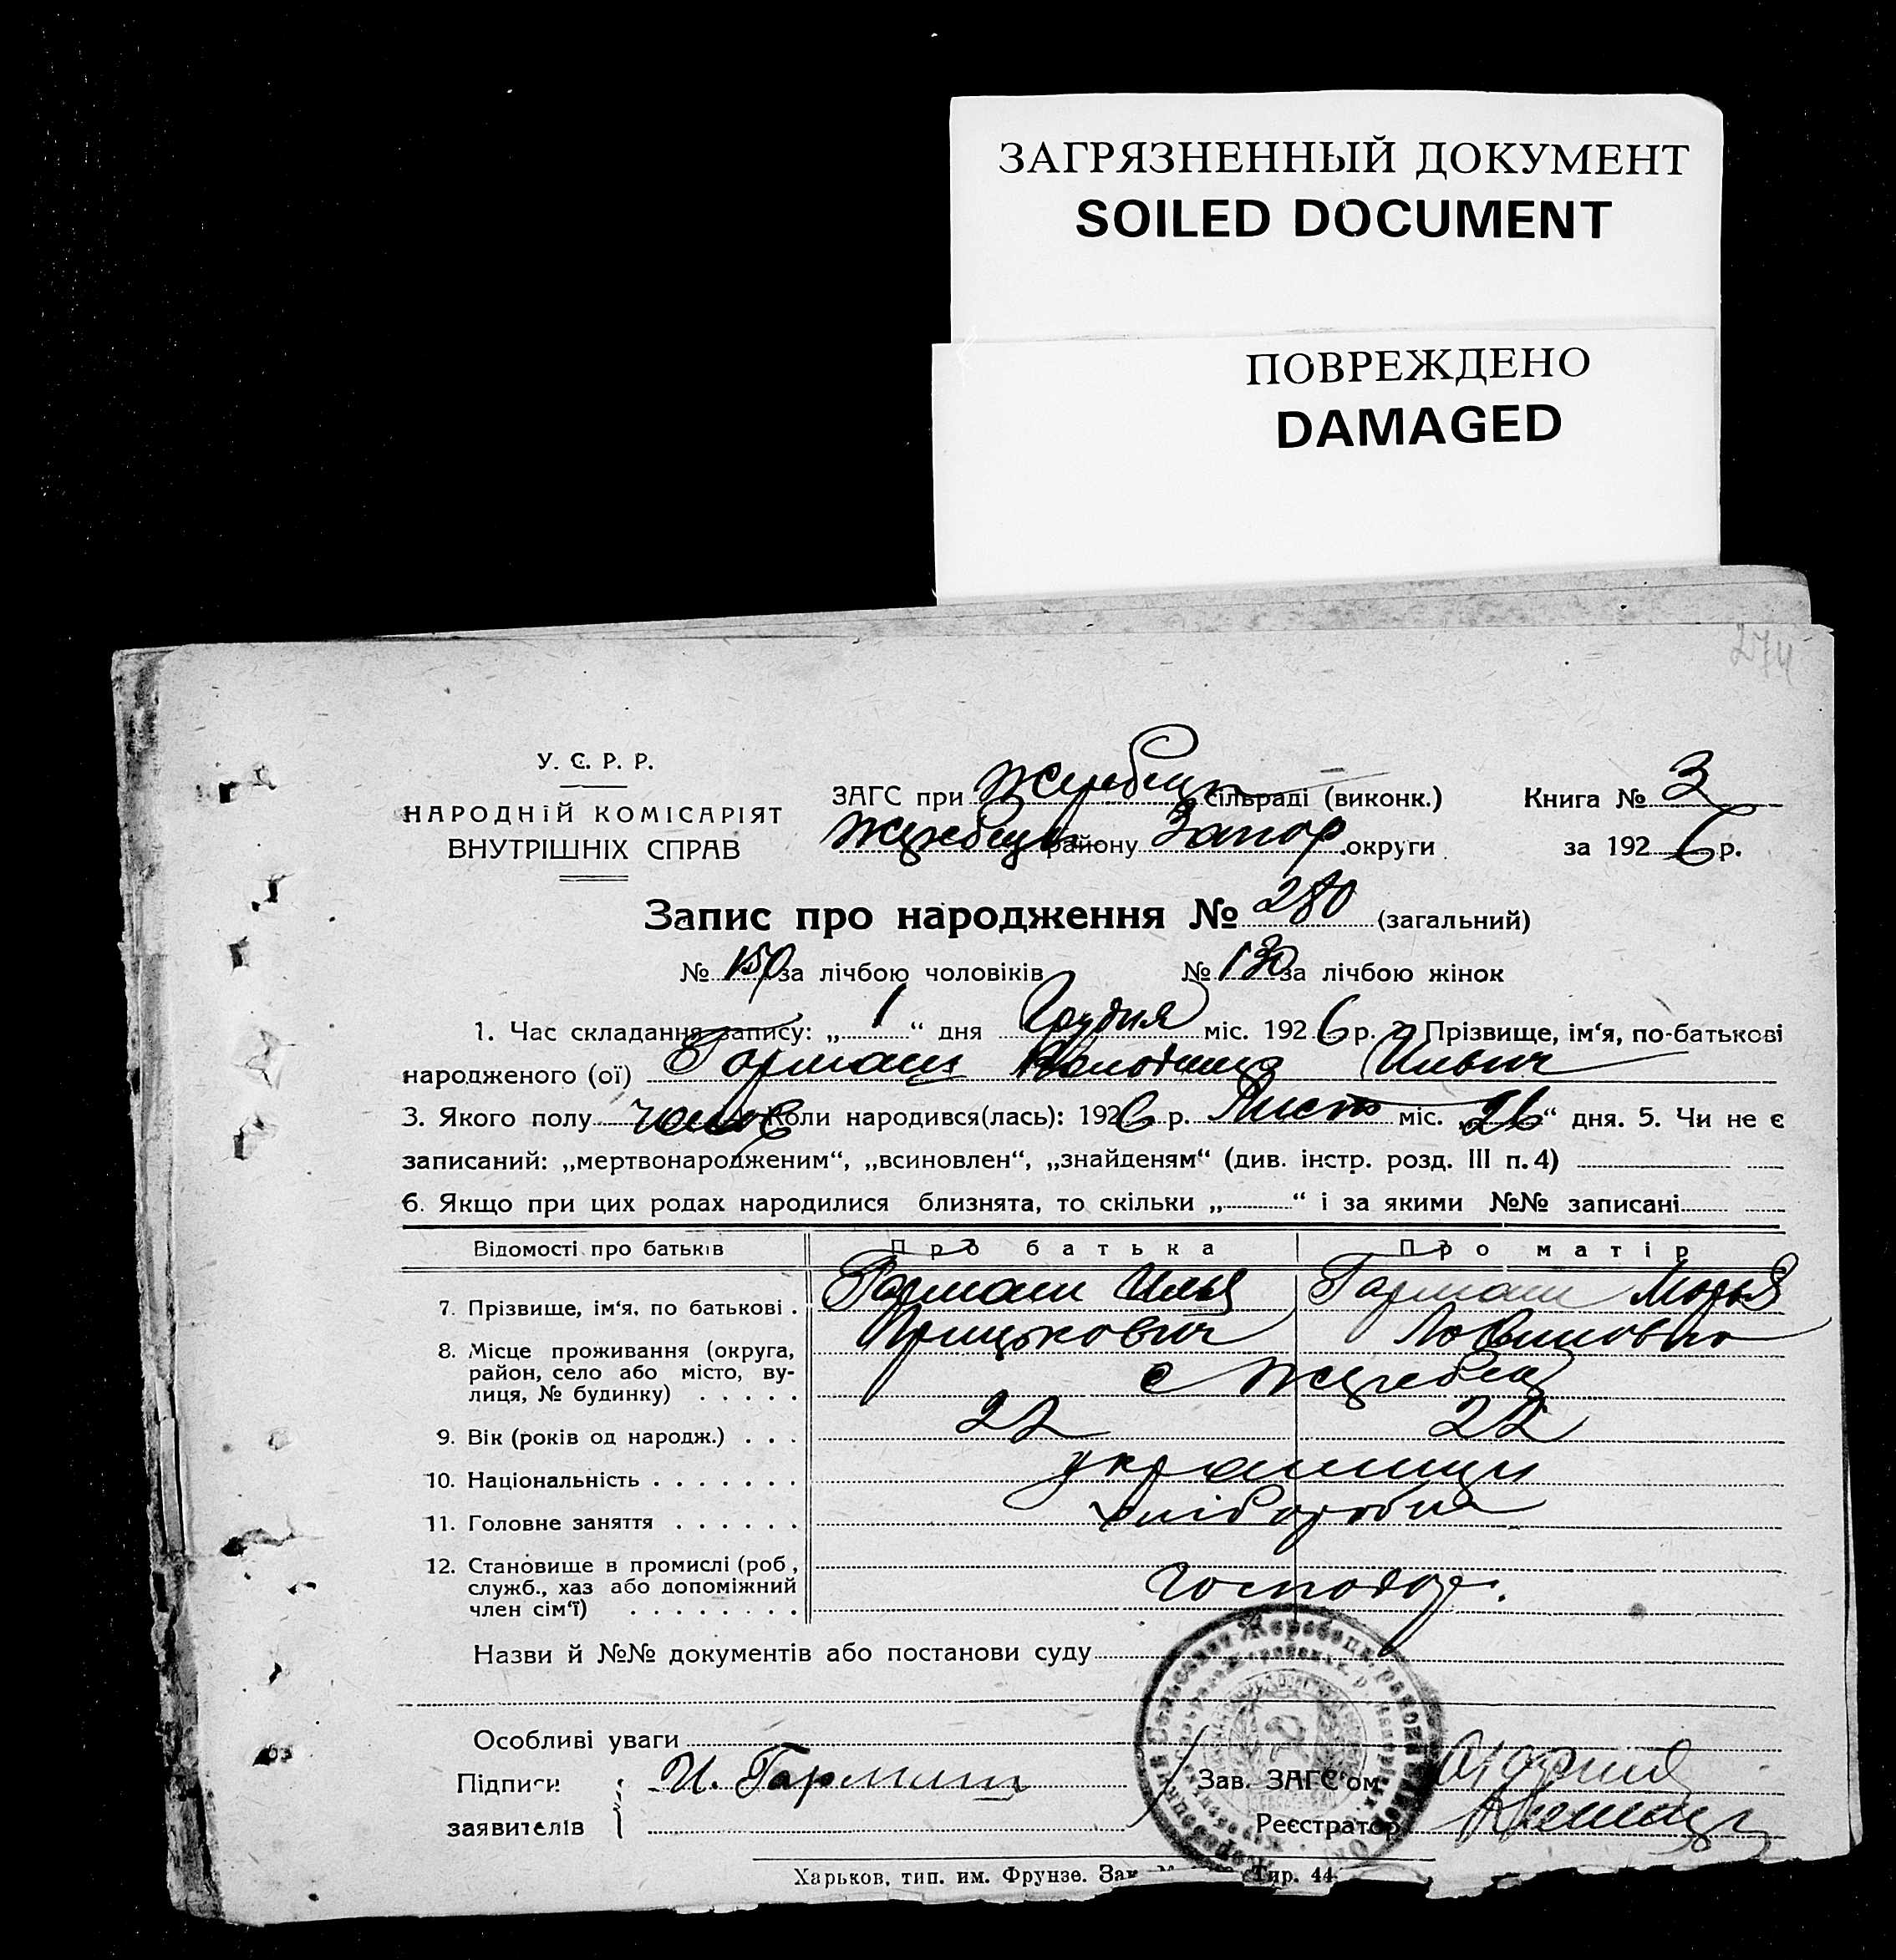 ЗАГРЯЗНЕННЫЙ ДОКУМЕНТ
SOILED DOCUMENT
ПОВРЕЖДЕНО
DAMAGED
274
У. С. Р. Р.
НАРОДНІЙ КОМІСАРІЯТ
ВНУТРІШНІХ СПРАВ
ЗАГС при Жеребецьк сільраді (виконк.)
Жеребецьк району Запор. округи
Книга № 3
за 1926 р.
Запис про народження № 280 (загальний)
№ 150 за лічбою чоловіків № 130 за лічбою жінок
1. Час складання запису: „1“ дня Грудня міс. 1926 р. 2. Прізвище, ім'я, по-батькові
народженого (ої) Гармаш Ильич
3. Якого полу чолов Коли народився(лась): 1926 р. Лист міс. „26“ дня. 5. Чи не є
записаний: „мертвонародженим“, „всиновлен“, „знайденям“ (див. інстр. розд. III п. 4)
6. Якщо при цих родах народилися близнята, то скільки „ “ і за якими №№ записані
Відомості про батьків Про батька Про матір
7. Прізвище, ім'я, по батькові . Гармаш Илья Грицькович Гармаш Марья
8. Місце проживання (округа, район, село або місто, вулиця, № будинку) . . . . . с Жеребец
9. Вік (років од народж.) . . . 22 22
10. Національність . . . . . . . українци
11. Головне заняття . . . . . . хлібороби
12. Становище в промислі (роб, служб., хаз або допоміжний член сім'ї) . . . . . . . . господар.
Назви й №№ документів або постанови суду
Особливі уваги
Підписи заявителів И. Гармаш
Зав. ЗАГС'ом
Реєстратор
Харьков, тип. им. Фрунзе. Зак. Тир. 44